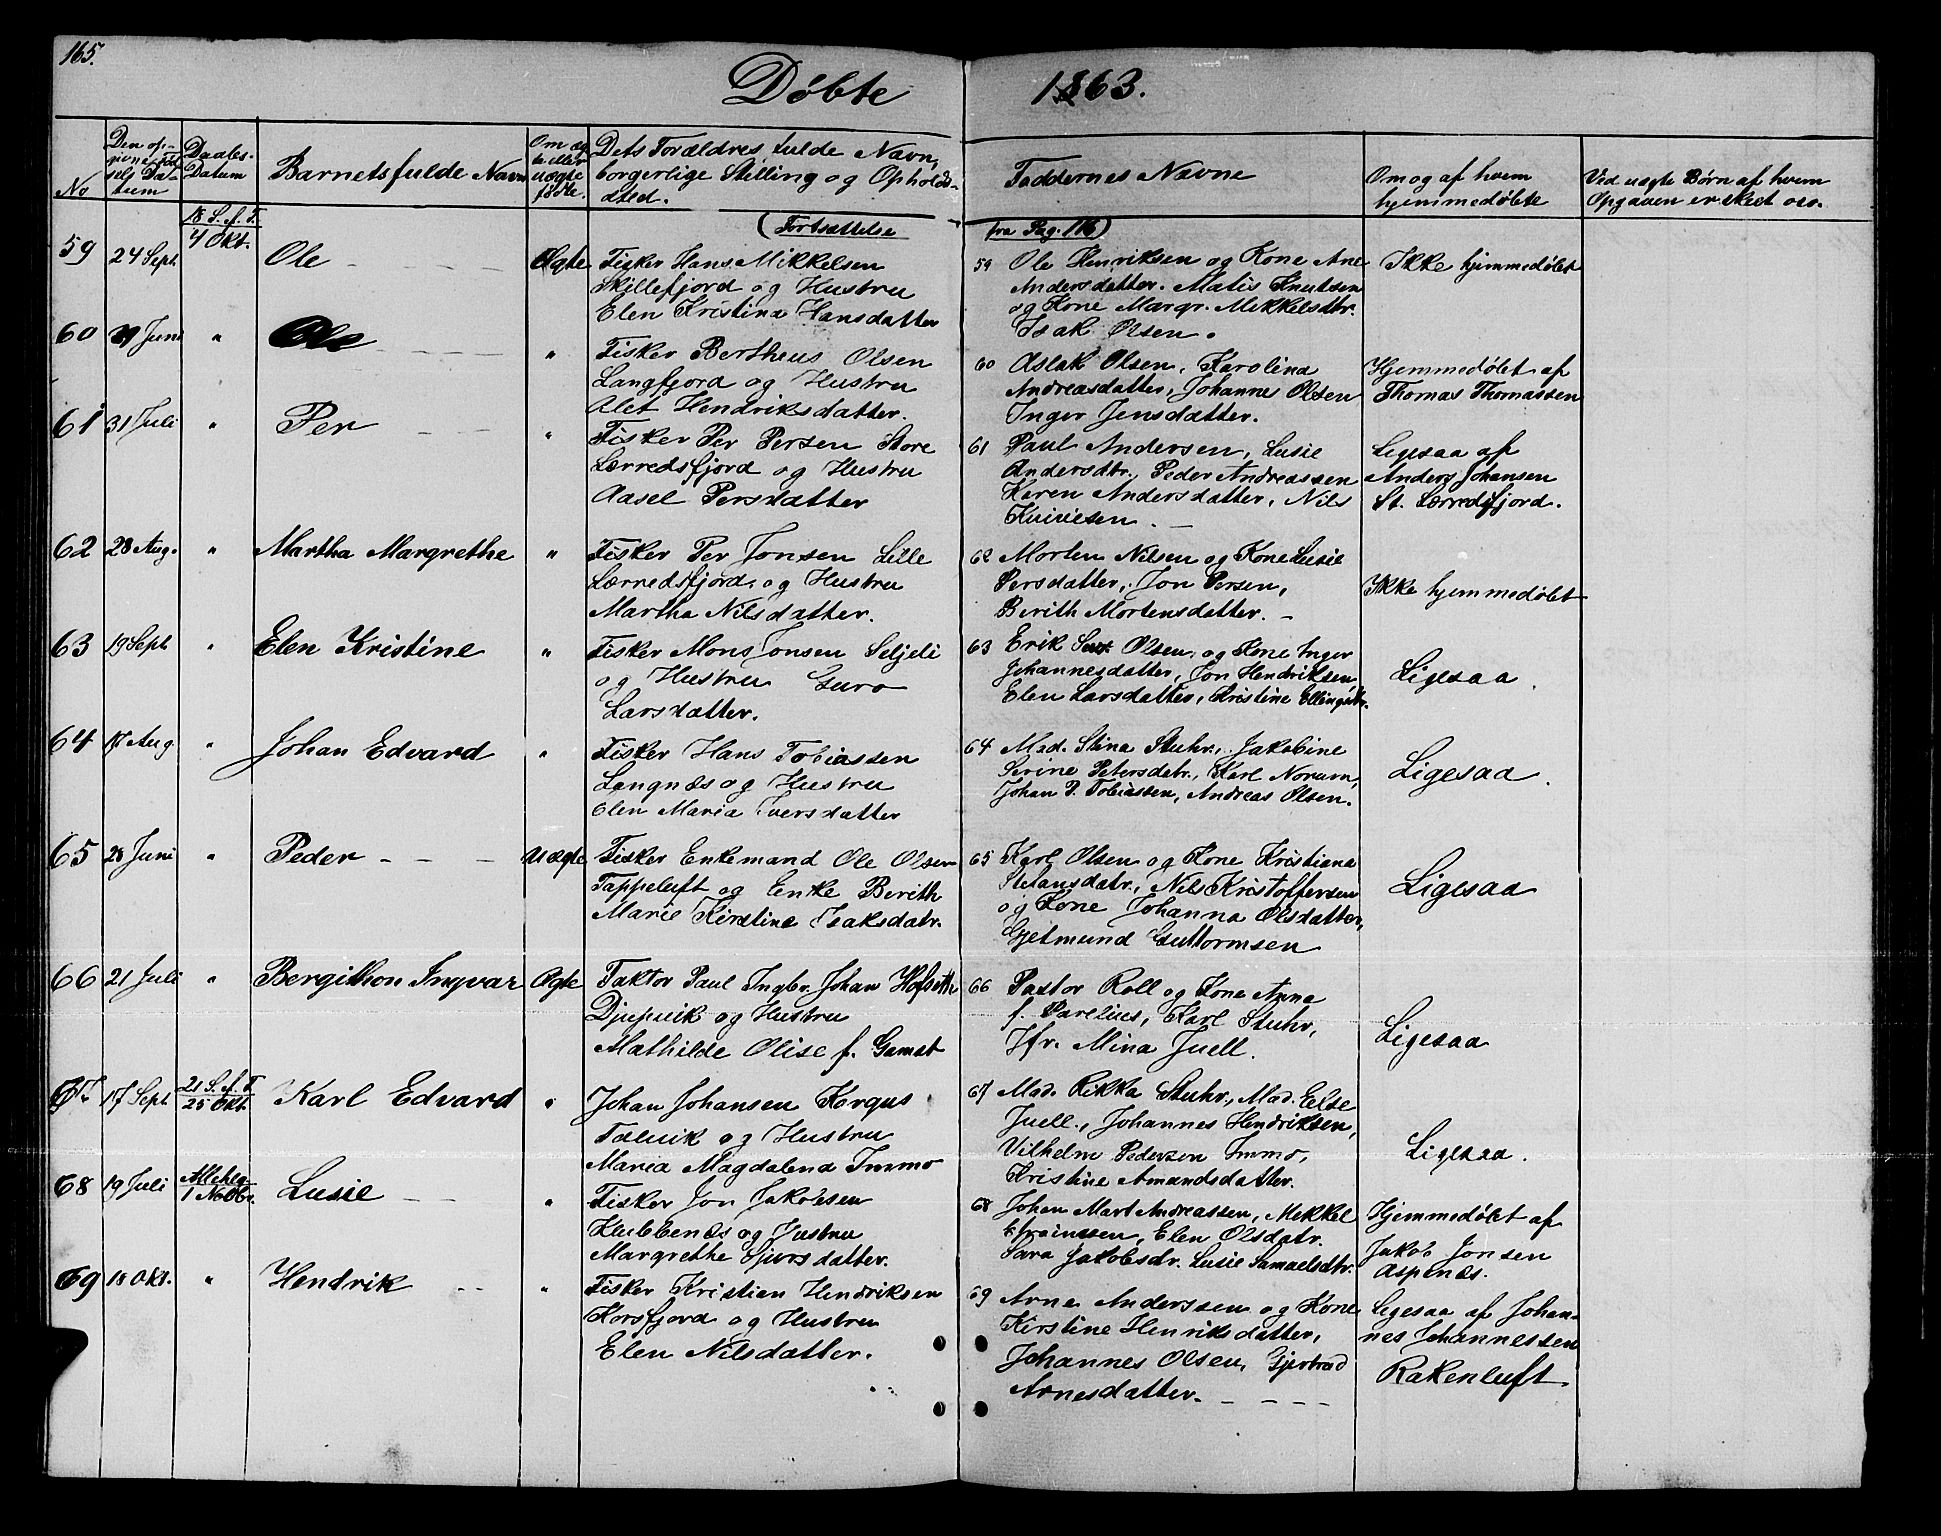 165.
Døbte 1863.
No
Den op-
givne Fød
sels Da-
tum
Daabs-
Datum
Barnets fulde Navn
Om æg
te eller
uægte
født.
Dets Forældres fulde Navn,
borgerlige Stilling og Opholds-
sted.
Faddernes Navne
Om og af hvem
hjemmedøbte
Ved uægte Børn af hvem
Opgaven er skeet osv.
(Fortsættelse fra Pag. 116)
59 24 Sept. 18 S. e. T. 4 Okt. Ole - - - Ægte
Fisker Hans Mikkelsen
Skillefjord og Hustru
Elen Kristina Hansdatter
59 Ole Henriksen og Kone Ane
Andersdatter. Matis Knutsen
og Kone Margr. Mikkelsdtr.
Isak Olsen.
Ikke hjemmedøbt
60 29 Juni " Ole - - - "
Fisker Bertheus Olsen
Langfjord og Hustru
Alet Hendriksdatter.
60 Aslak Olsen, Karolina
Andreasdatter, Johannes Olsen
Inger Jensdatter.
Hjemmedøbt af
Thomas Thomassen
61 31 Juli " Per - - - "
Fisker Per Persen Store
Lerredsfjord og Hustru
Aasel Persdatter
61 Paul Andersen, Lusie
Andersdtr., Peder Andreassen
Karen Andersdatter, Nils
Kuiviesen. -
Ligesaa af
Anders Johansen
St. Lerredsfjord.
62 28 Aug. " Martha Margrethe "
Fisker Per Jonsen Lille
Lerredsfjord og Hustru
Martha Nilsdatter.
62 Morten Nilsen og Kone Lusie
Persdatter, Jon Persen,
Berith Mortensdatter. -
Ikke hjemmedøbt
63 19 Sept. " Elen Kristine "
Fisker Mons Jonsen Seljeli
og Hustru Guro
Larsdatter.
63 Erik Olsen og Kone Inger
Johannesdatter, Jon Hendriksen
Elen Larsdatter, Kristine Ellingsdtr.
Ligesaa.
64 17 Aug. " Johan Edvard "
Fisker Hans Tobiassen
Langnæs og Hustru
Elen Maria Iversdatter
64 Mad. Stina Stuhr, Jakobine
Serine Petersdatr., Karl Norum,
Johan P. Tobiassen, Andreas Olsen.
Ligesaa.
65 28 Juni " Peder - - - Uægte
Fisker Enkemand Ole Olsen
Tappeluft og Enke Berith
Marie Kirstine Isaksdatr.
65 Karl Olsen og Kone Kristiana
Stefansdatr., Nils Kristoffersen
og Kone Johanna Olsdatter,
Gjetmund Guttormsen
Ligesaa
66 21 Juli " Bergithon Ingvar Ægte
Faktor Paul Ingbr. Johan Hofseth
Djupvik og Hustru
Mathilde Olise f. Gamst
66 Pastor Roll og Kone Anna
f. Parelius, Karl Stuhr,
Jfr. Mina Juell.
Ligesaa
67 17 Sept. 21 S. e. T. 25 Okt. Karl Edvard "
Johan Johansen Korgus
Talvik og Hustru
Maria Magdalena Immo
67 Mad. Rikka Stuhr, Mad. Else
Juell, Johannes Hendriksen,
Vilhelm Pedersen Immo,
Kristine Amandsdatter.
Ligesaa.
68 19 Juli Allehlg. 1 Novbr. Lusie - - "
Fisker Jon Jakobsen
Klubbenæs og Hustru
Margrethe Sjursdatter.
68 Johan Mart. Andreassen, Mikkel
Efraimsen, Elen Olsdatr.
Sara Jakobsdr. Lusie Samuelsdtr.
Hjemmedøbt af
Jakob Jonsen
Aspenes.
69 18 Okt. " Hendrik - - "
Fisker Kristian Hendriksen
Korsfjord og Hustru
Elen Nilsdatter.
69 Arne Anderssen og Kone
Kirstine Henriksdatter,
Johannes Olsen, Gjertrud
Arnesdatter. - - - -
Ligesaa af Johan-
nes Johannessen
Rakenluft.